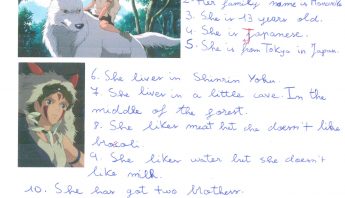 2. Her family name is Mononoke
3. She is 13 years old.
4. She is Japanese.
5. She is from Tokyo in Japan.
6. She lives in Shinrin Yoku.
7. She lives in a little cave. In the
middle of the forest.
8. She likes meat but she doesn't like
9. She likes water but she doesn't
like milk.
10. She has got two brothers.